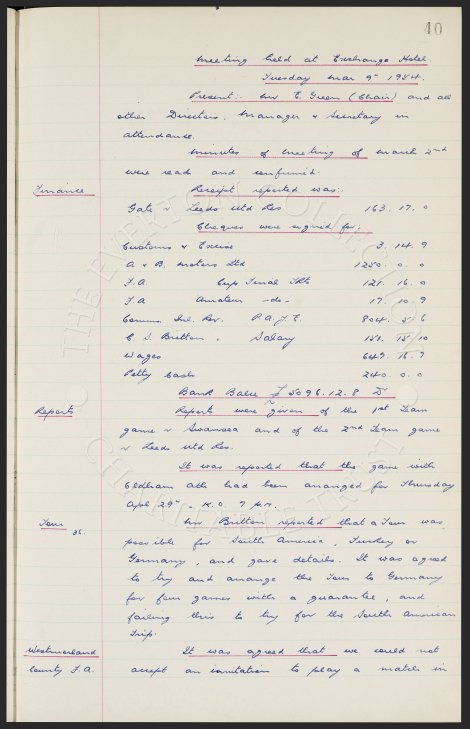 40
Meeting held at Exchange Hotel
Tuesday Mar 9th 1954.
Present:- Mr E. Green (Chair) and all
other Directors. Manager & Secretary in
attendance.
Minutes of meeting of March 2nd
were read and confirmed.
Finance Receipt reported was:-
Gate v Leeds Utd Res 163. 17. 0
Cheques were signed for:-
Customs & Excise 3. 14. 9
A & B. Motors Ltd 1250. 0. 0
F.A. Cup Final Tkts 121. 16. 0
F.A. Amateur -do- 17. 10. 9
Comms. Inl. Rev. P.A.Y.E. 804. 5. 6
C. S. Britton. Salary 10
Wages 649. 16. 7
Petty Cash 240. 0. 0
Bank Balce £5096. 12. 8 D
Reports Reports were given of the 1st Team
game v Swansea and of the 2nd Team game
v Leeds Utd Res.
It was reported that the game with
Oldham Ath had been arranged for Thursday
Apl 29th - K.O. 7 p.m.
Tour Mr Britton reported that a Tour was
36.
possible for South America, Turkey or
Germany, and gave details. It was agreed
to try and arrange the Tour to Germany
for four games with a guarantee, and
failing this to try for the South American
Trip.
Westmorland It was agreed that we could not
County F.A. accept an invitation to play a match in
THE EVERTON COLLECTION
CHARITABLE TRUST